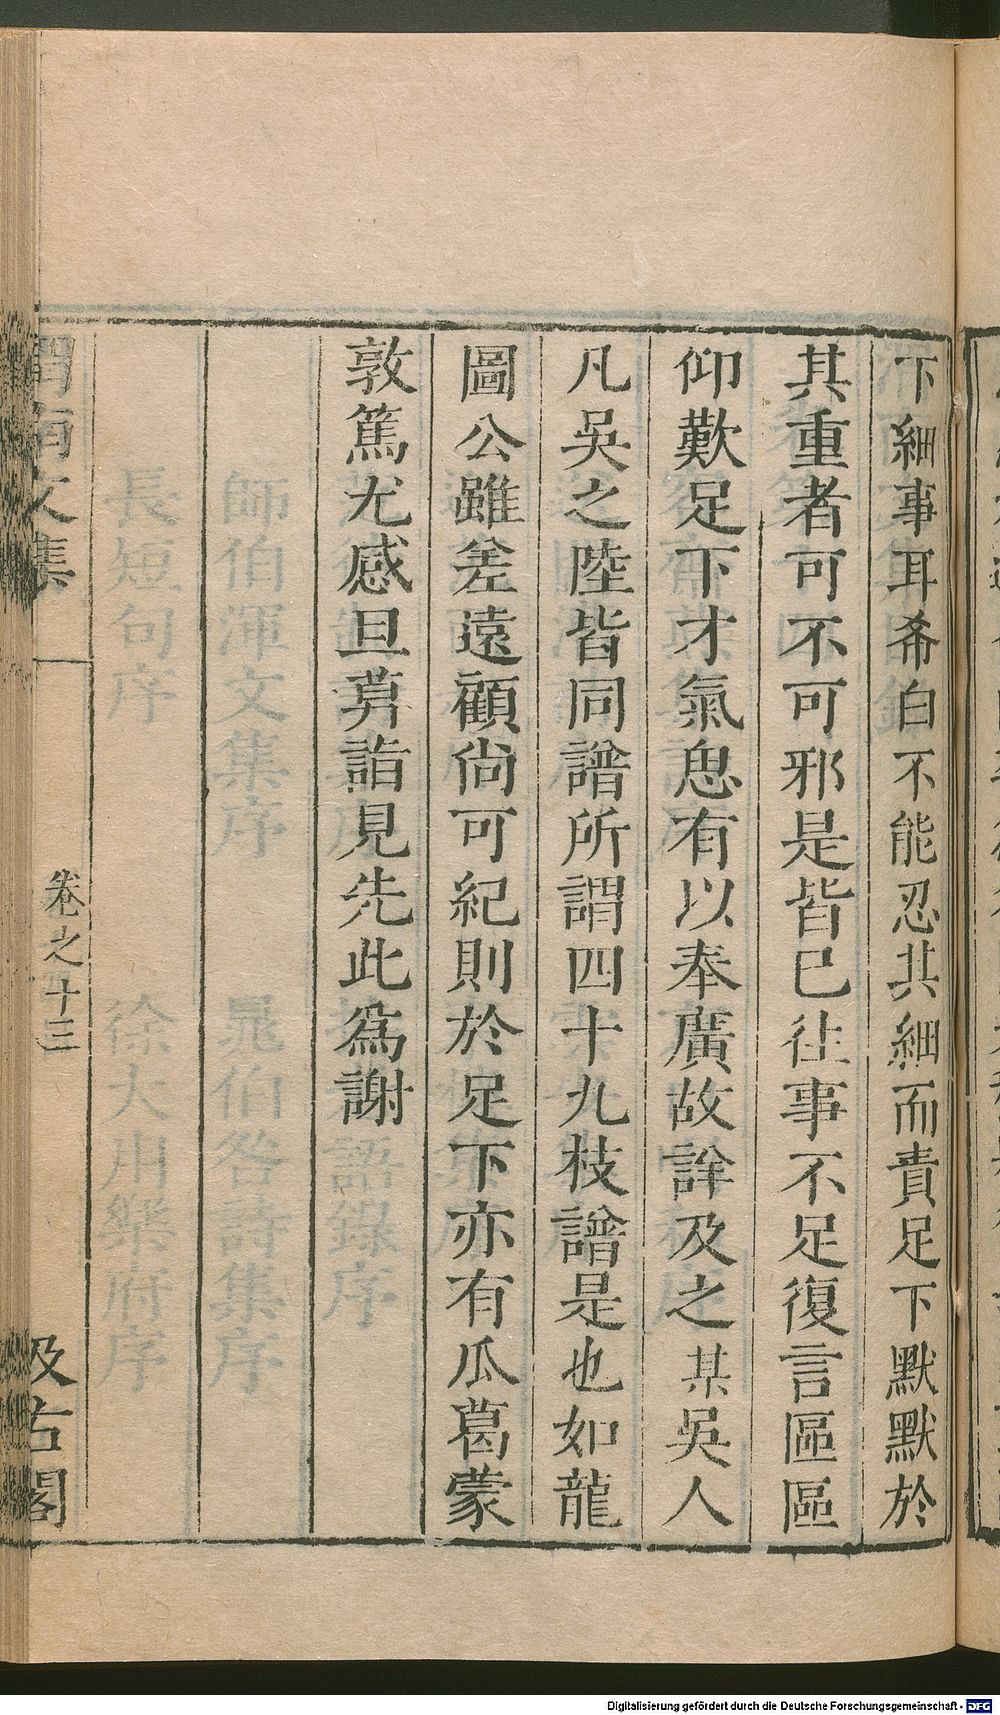 下細事耳希白不能忍其細而責足下默默於
其重者可不可邪是皆已往事不足復言區區
仰歎足下才氣思有以奉廣故詳及之某吳人
凡吳之陸皆同譜所謂四十九枝譜是也如龍
圖公雖差遠顧尚可紀則於足下亦有瓜葛蒙
敦篤尤感旦莫詣見先此為謝
渭南文集
卷之十三
汲古閣
Digitalisierung gefördert durch die Deutsche Forschungsgemeinschaft - DFG